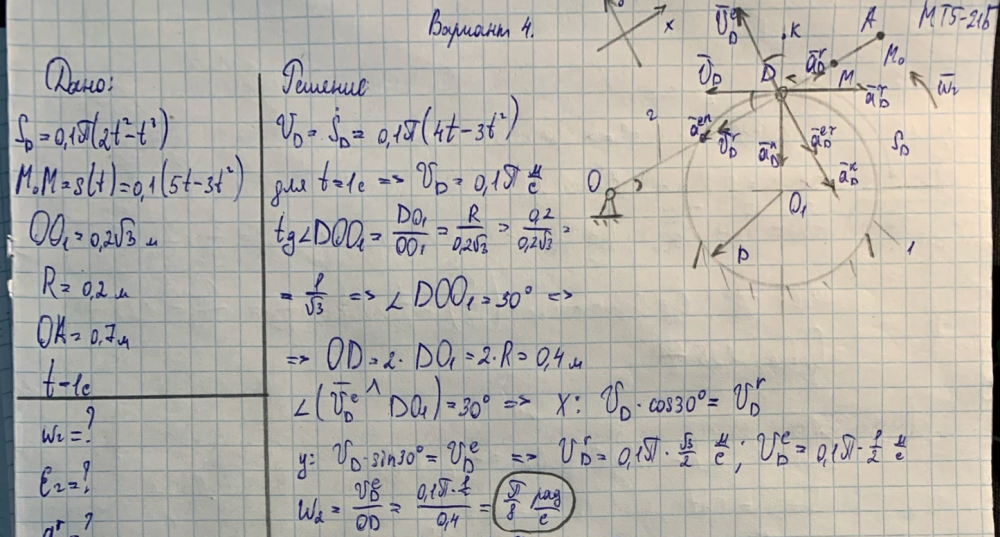 Вариант 4.
МТ5-21Б
Дано:
S_D = 0,1π(2t²-t³)
M₀M = s(t) = 0,1(5t-3t²)
OO₁ = 0,2√3 м
R = 0,2 м
OA = 0,7 м
t = 1c
ω₂ = ?
ε₂ = ?
a^r = ?
Решение
V_D = Ṡ_D = 0,1π(4t-3t²)
для t=1c => V_D = 0,1π м/с
tg∠DOO₁ = DO₁/OO₁ = R/0,2√3 = 0,2/0,2√3 =
= 1/√3 => ∠DOO₁ = 30° =>
=> OD = 2·DO₁ = 2·R = 0,4 м
∠(V̄_D^e ^ DO₁) = 30° => x: V_D·cos30° = V_D^r
y: V_D·sin30° = V_D^e => V_D^r = 0,1π·√3/2 м/с; V_D^e = 0,1π·1/2 м/с
ω₂ = V_D^e/OD = 0,1π·½/0,4 = π/8 рад/с
x
V̄_D^e
K
A
M₀
ā_D^r
M
D
V̄_D
ω̄₂
2
V̄_D^r
S_D
O
O₁
R
1